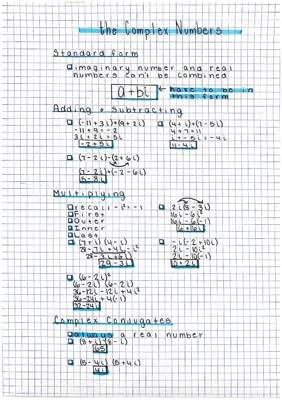 the Complex Numbers
Standard form
imaginary number and real
numbers can't be combined
a+bi ← have to be in
this form
Adding + Subtracting
(-11+3i)+(9+2i)
-11+9=-2
3i+2i=5i
-2+5i
(4+i)+(7-5i)
4+7=11
i+-5i=-4i
11-4i
(7-2i)-(2+6i)
(7-2i)+(-2-6i)
5-8i
Multiplying
recall -i²=-1
First
Outer
Inner
Last
2i(8-3i)
16i-6i²
16i-6(-1)
6+16i
(7+i)(4-i)
28-7i+4i-i²
28-3i+1
29-3i
-i(-2+10i)
2i-10i²
2i-10(-1)
10+2i
(6-2i)²
(6-2i)(6-2i)
36-12i-12i+4i²
36-24i+4(-1)
32-24i
Complex Conjugates
always a real number
(8+i)(8-i)
65
(5-4i)(5+4i)
41